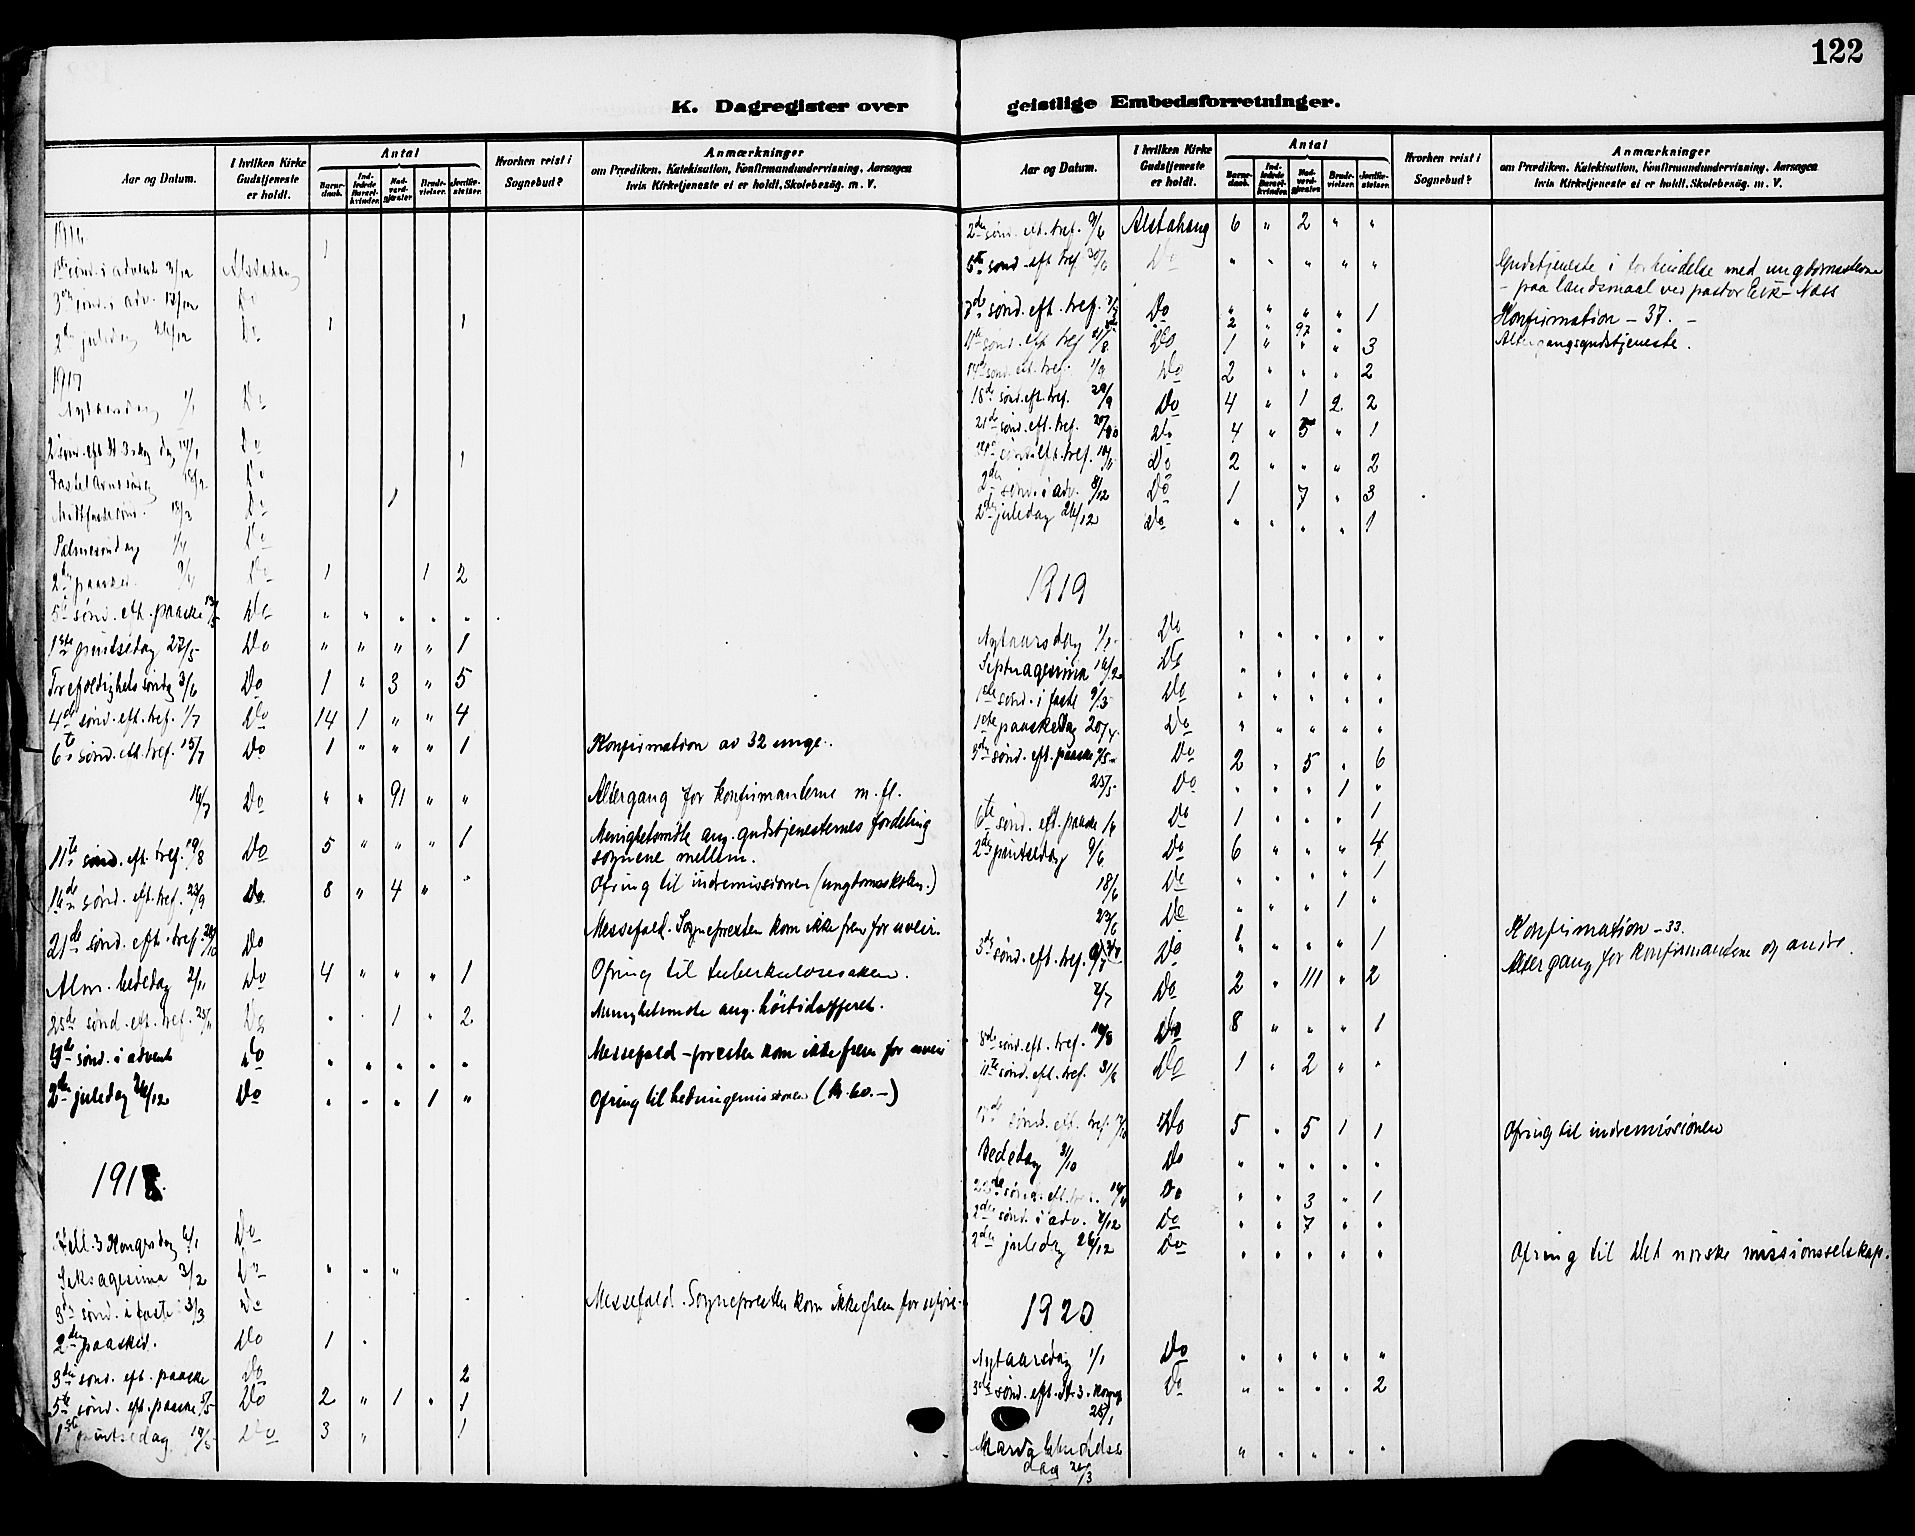 122
K. Dagregister over geistlige Embedsforretninger.
Aar og Datum.
I hvilken Kirke Gudstjeneste er holdt.
Antal
Barne-daab.
Ind-ledede Barsel-kvinder.
Nad-verd-gjæster.
Brude-vielser.
Jordfæ-stelser.
Hvorhen reist i Sognebud?
Anmærkninger
om Prædiken, Katekisation, Konfirmandundervisning, Aarsagen
hvis Kirketjeneste ei er holdt, Skolebesøg. m. V.
1916
1ste sønd. i advent 3/12 Alstahaug 1
3die sønd. i adv. 17/12 Do
2den juledag 26/12 Do 1 1
1917
Nytaarsdag 1/1 Do
2 sønd. eft. H. 3 kg. dag 14/1 Do
Fastelavnssønd. 18/2 Do 1
Midtfastesønd. 18/3 Do 1
Palmesøndag 1/4 Do
2den paasked. 9/4 Do 1 1 2
5te sønd. eft. paaske 13/5 Do " " " " "
1ste pintsedag 27/5 Do " " " " 1
Trefoldighetssøndag 3/6 Do 1 " 3 " 5
4de sønd. eft. tref. 1/7 Do 14 1 " " 4
6te sønd. eft. tref. 15/7 Do 1 " " " 1 Konfirmation av 32 unge.
16/7 Do " " 91 " " Altergang for konfirmanterne m. fl.
11te sønd. eft. tref. 19/8 Do 5 " " " 1 Menighetsmøte ang. gudstjenesternes fordeling
sognene mellem.
16de sønd. eft. tref. 23/9 Do 8 " 4 " " Ofring til indremissionen (ungdomsskolen.)
21de sønd. eft. tref. 28/10 Do Messefald. Sognepresten kom ikke frem for uveir.
Alm. bededag 2/11 Do 4 " " " 1 Ofring til tuberkulosesaken.
25de sønd. eft. tref. 25/11 Do " " 1 " 2 Menighetsmøte ang. høitidsofferet.
4de sønd. i advent Do " " " " " Messefald – presten kom ikke frem for uveir
2den juledag 26/12 Do " " " 1 " Ofring til hedningemissionen (kr. 60.–)
1918.
Hell. 3 Kongersdag 6/1 Do
Seksagesima 3/2 Do " " "
3die sønd. i faste 3/3 Do Messefald. Sognepresten kom ikke frem for
2den paasked. Do 1 "
3die sønd. eft. paaske Do 2
5te sønd. eft. paaske 5/5 Do 2 " 1 " 1
1ste pintsedag 19/5 Do 3 " 1
Aar og Datum.
I hvilken Kirke Gudstjeneste er holdt.
Antal
Barne-daab.
Ind-ledede Barsel-kvinder.
Nad-verd-gjæster.
Brude-vielser.
Jordfæ-stelser.
Hvorhen reist i Sognebud?
Anmærkninger
om Prædiken, Katekisation, Konfirmandundervisning, Aarsagen
hvis Kirketjeneste ei er holdt, Skolebesøg. m. V.
2den sønd. eft. tref. 9/6 Alstahaug 6 " 2 " "
5te sønd. eft. tref. 30/6 Do " " " " " Gudstjeneste i forbindelse med
– paa landsmaal ved pastor Eik-Næs
sønd. eft. tref. Do " " " " 1 Konfirmation – 37. –
2 " 92 " Altergangsgudstjeneste.
sønd. eft. tref. Do 1 " " " 3
14de sønd. eft. tref. 1/9 Do 2 " " " 2
18de sønd. eft. tref. 29/9 Do 4 " 1 2 2
21de sønd. eft. tref. 20/10 Do 4 " 5 " 1
sønd. eft. tref. Do 2 " " " 2
2den sønd. i adv. 8/12 Do 1 7 " 3
2den juledag 26/12 Do " " " " 1
1919
Nytaarsdag 1/1 Do " " " " "
Septuagesima 16/2 Do " " " " "
1ste sønd. i faste 9/3 Do " " " " "
1ste paaskedag 20/4 Do " " " " "
sønd. eft. paaske Do 2 " 5 " 6
25/5 Do " " " 1 "
6te sønd. eft. paaske 1/6 Do 1 " " " 1
2den pintsedag 9/6 Do 6 " " " 4
18/6 Do " " " " 1
23/6 Do " " " 1 "
3die sønd. eft. tref. Do " " " 1 Konfirmation – 33.
2/7 Do 2 " 111 " 2 Altergang for konfirmanterne og andre.
8de sønd. eft. tref. 10/8 Do 8 " " " 1
11te sønd. eft. tref. 31/8 Do 1 " 2 " "
sønd. eft. tref. 12/10 Do 5 " 5 1 1 Ofring til indremissionen
Bededag 31/10 Do " " " " "
sønd. eft. tref. Do " " 3 " 1
2den sønd. i adv. 7/12 Do " " 7 " "
2den juledag 26/12 Do " " " " " Ofring til Det norske missionsselskap.
1920
Nytaarsdag 1/1 Do " " " " "
3die sønd. eft. H. 3. kongeg. 25/1 Do " " " " 2
Maria bebudelses
dag /3 " " " " "